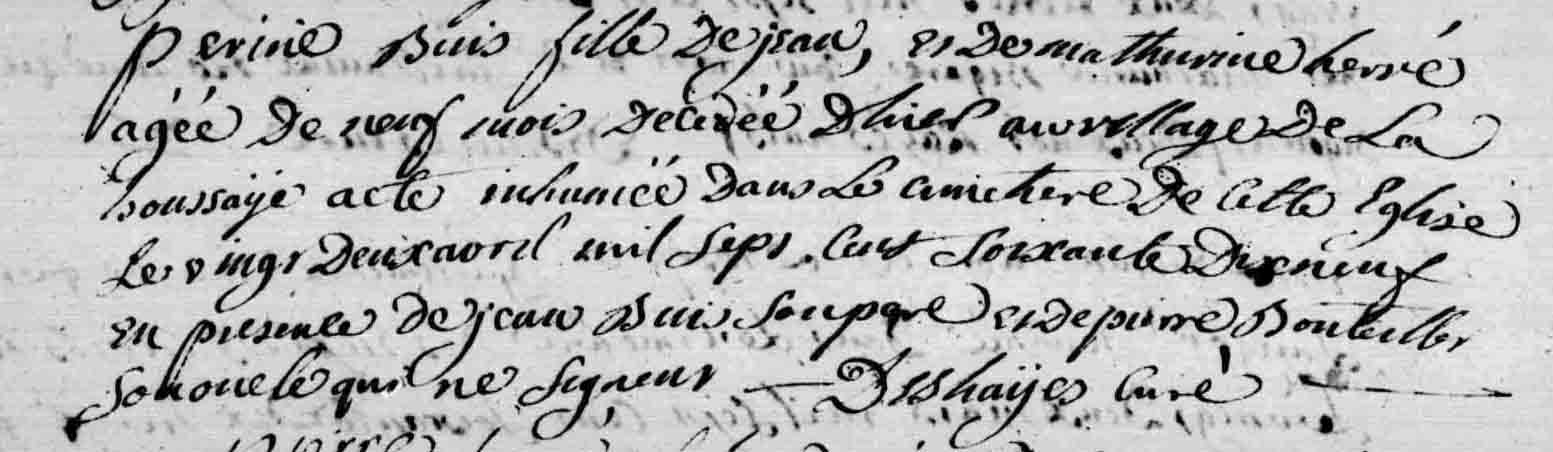 Perine Buis fille De jean, et De mathurine hervé
agéé De neuf mois Decedéé D'hier au village De La
houssaÿe acte inhuméé Dans Le cimetiere De Cette Eglise
Le vingt Deux avril mil Sept Cent Soixante Dix neuf
En presence De jean Buis Son pere et De pierre Bouteiller
Son oncle qui ne Signent — Deshaÿes Curé —